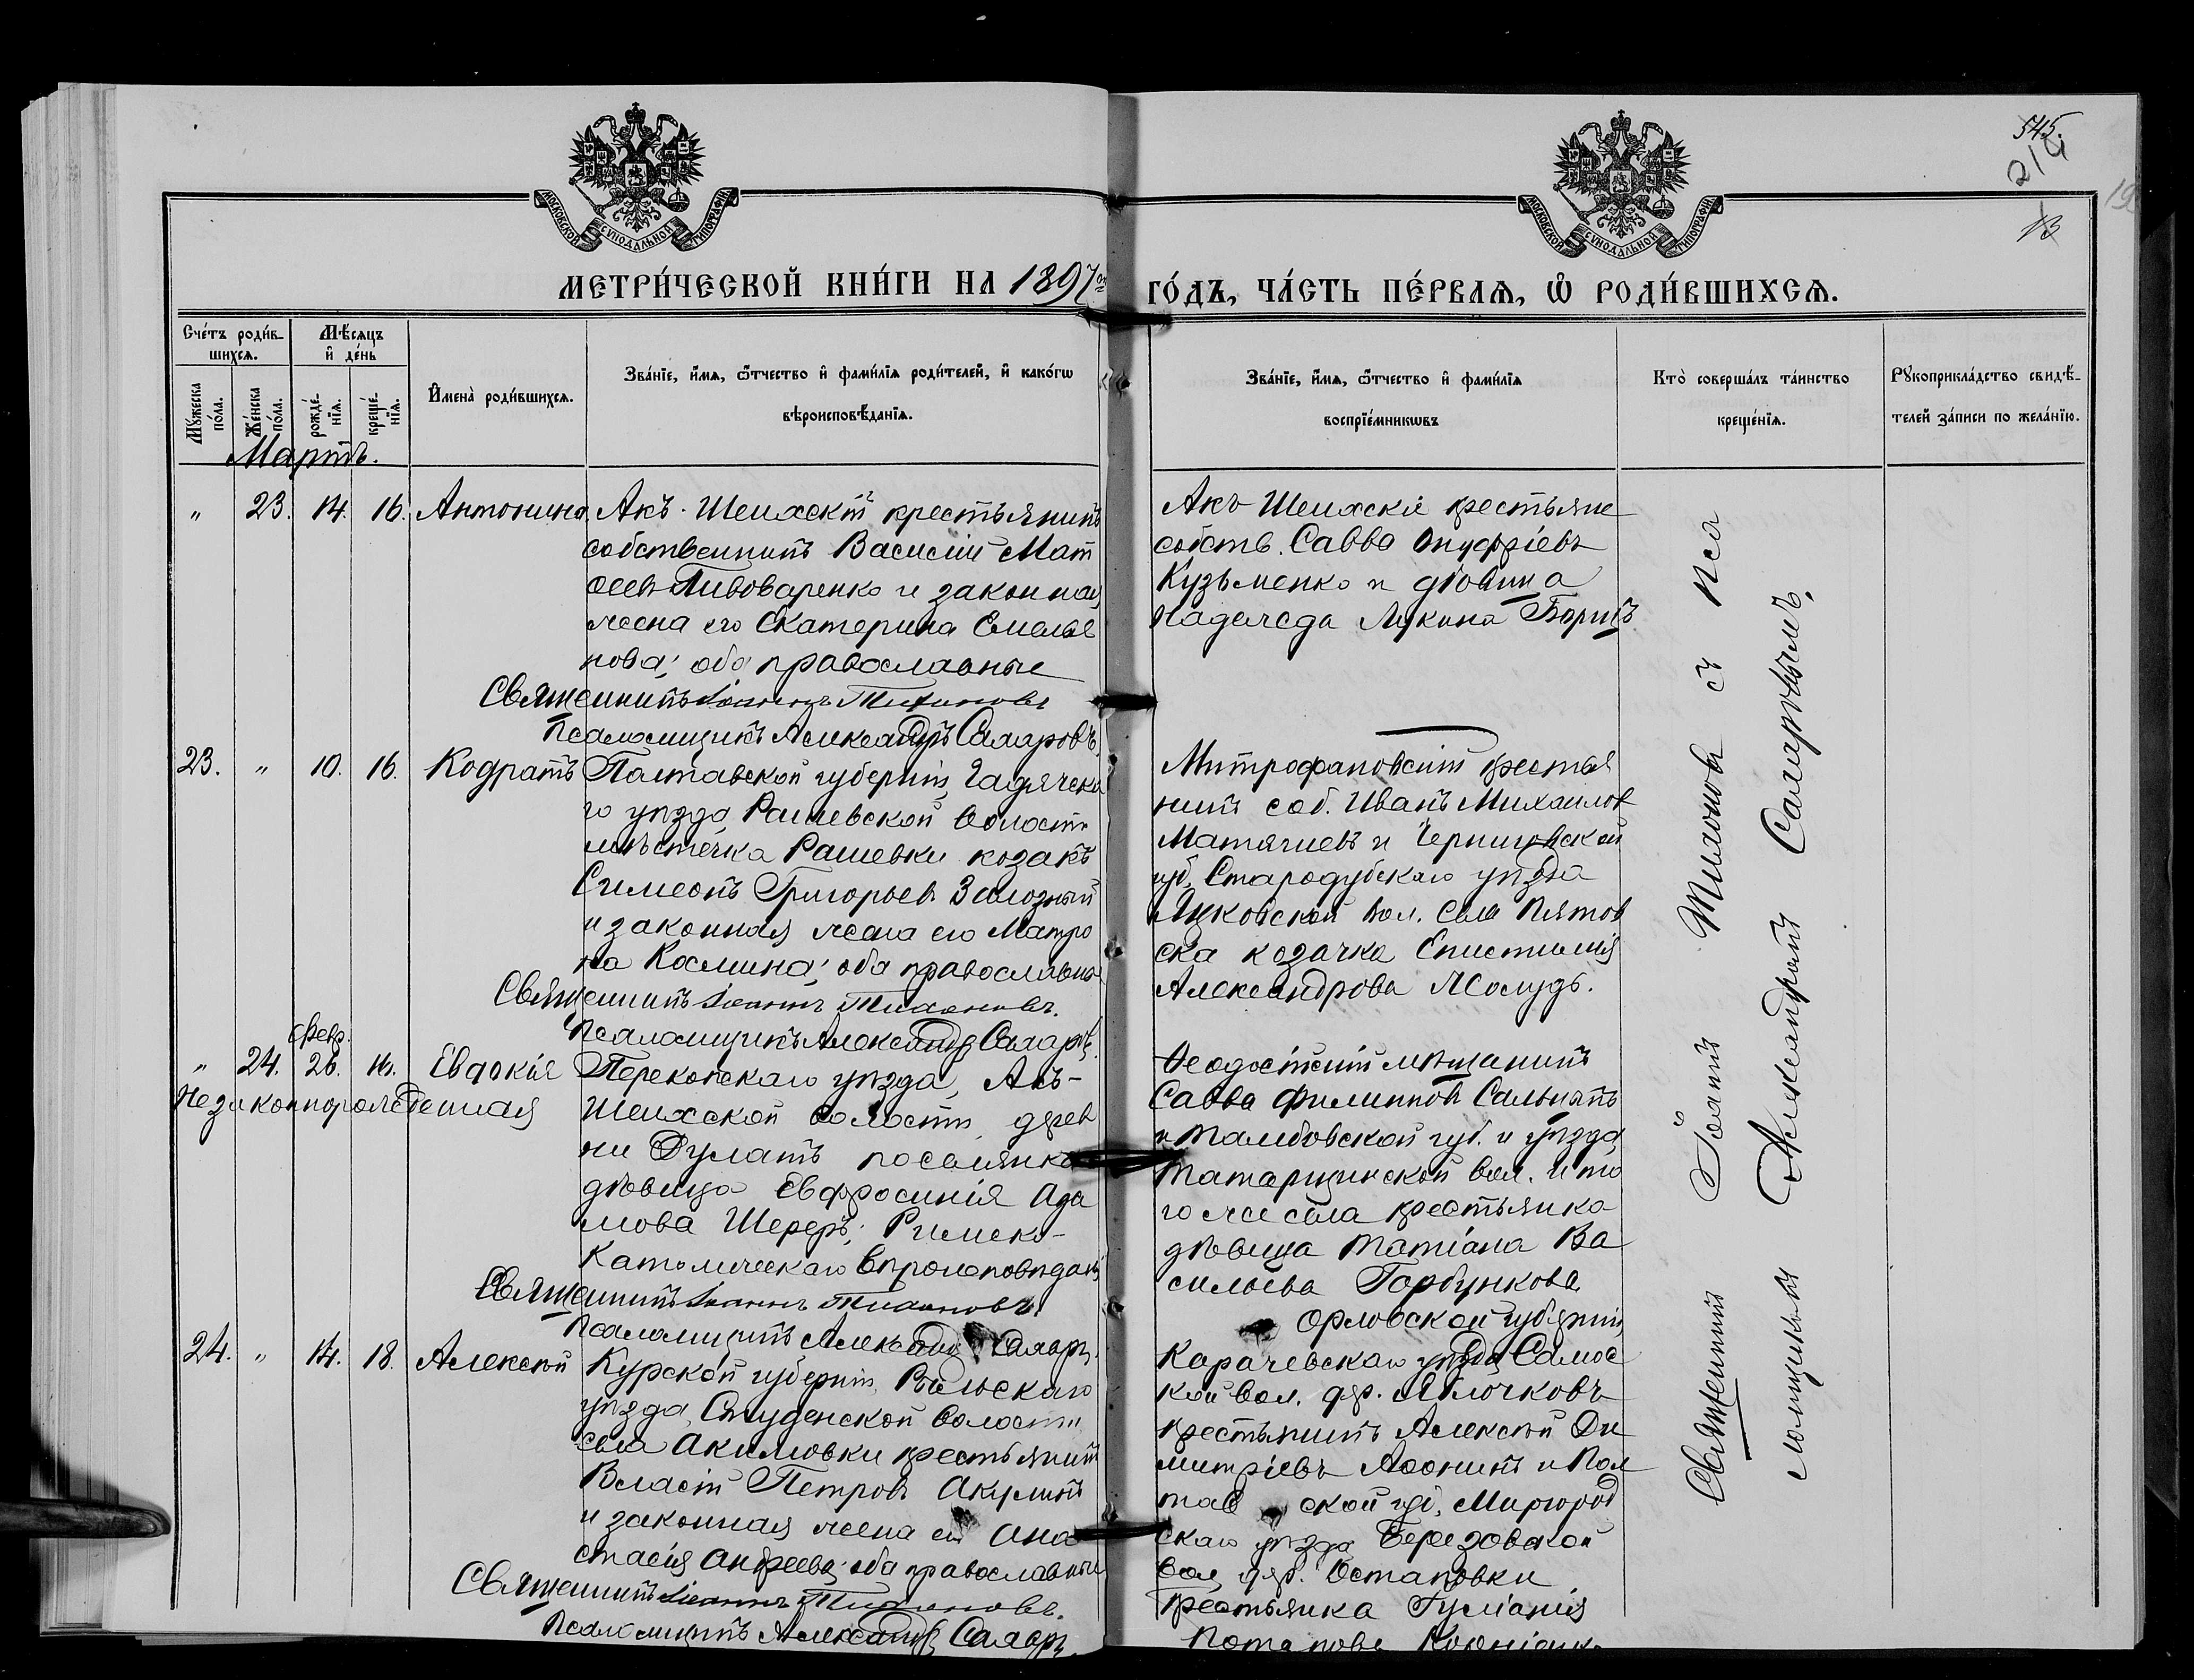 545.
214
13
19
МОСКОВСКОЙ СѴНОДАЛЬНОЙ ТИПОГРАФІИ
МОСКОВСКОЙ СѴНОДАЛЬНОЙ ТИПОГРАФІИ
МЕТРИ́ЧЕСКОЙ КНИ́ГИ НА 1897й ГО́ДЪ, ЧА́СТЬ ПЕ́РВАѦ, Ѡ РОДИ́ВШИХСѦ.
Счéтъ роди́в-
шихсѧ.
Мꙋ́жеска
по́ла.
Же́нска
по́ла.
Мѣ́сѧцъ
и҆ де́нь
рожде́-
нїѧ.
креще́-
нїѧ.
И҆мена̀ роди́вшихсѧ.
Зва́нїе, и҆́мѧ, ѻ҆́тчество и҆ фами́лїѧ роди́телей, и҆ како́гѡ
вѣроисповѣ́данїѧ.
Зва́нїе, и҆́мѧ, ѻ҆́тчество и҆ фами́лїѧ
воспрїе́мникѡвъ
Кто̀ соверша́лъ та́инство
креще́нїѧ.
Рꙋкоприкла́дство свидѣ́-
телей за́писи по жела́нїю.
Мартъ.
" 23. 14. 16. Антонина
Акъ-Шеихскій крестьянинъ
собственникъ Василій Мат
ѳеевъ Пивоваренко и законная
жена его Екатерина Емелья
нова; оба православные
Священникъ Іоаннъ Тихоновъ
Псаломщикъ Александръ Самаровъ.
Акъ Шеихскіе крестьяне
собств. Савва Онуфріевъ
Кузьменко и дѣвица
Надежда Лукина Борицъ
23. " 10. 16. Кодратъ
Полтавской губерніи, Гадячска
го уѣзда Рашевской волости
мѣстечка Рашевки козакъ
Симеонъ Григорьевъ Зало́зный
и законная жена его Матро
на Космина; оба православные
Священникъ Іоаннъ Тихоновъ.
Псаломщикъ Александръ Самаровъ.
Митрофановскій крестья
нинъ соб. Иванъ Михаилов
Матячиевъ и Черниговской
губ. Стародубскаго уѣзда
вол. села Пятов
ска козачка Епистимія
Александрова Жолудь.
" 24. февр. 26. 16. Евдокія
Незаконнорожденная
Перекопскаго уѣзда, Акъ-
Шеихской волости, дерев
ни Дулатъ поселянка
дѣвица Евфросинія Ада
мова Шереръ; Римско-
Католическаго вѣроисповѣданія
Священникъ Іоаннъ Тихоновъ.
Псаломщикъ Александръ Самаровъ.
Ѳеодосійскій мѣщанинъ
Савва Филипповъ Сальникъ
и Тамбовской губ. и уѣзда,
Татарщинской вол. и то
го же села крестьянка
дѣвица Татіана Ва
сильева Горбункова
24. " 14. 18. Алексѣй
Курской губерніи, Рыльскаго
уѣзда, Студенской волости
села Акимовки крестьянинъ
Власій Петровъ Акулинъ
и законная жена его Ана
стасія Андреева; оба православные
Священникъ Іоаннъ Тихоновъ.
Псаломщикъ Александръ Самаровъ.
Орловской губерніи,
Карачевскаго уѣзда Самос
кой вол. дер. Яблочковъ
крестьянинъ Алексѣй Ди
митріевъ Аѳонинъ и Пол
тавской губ. Миргород
скаго уѣзда Березовской
вол. дер. Остаповки
крестьянка Гуліанія
Потапова
Священникъ Іоаннъ Тихоновъ съ пса
ломщикомъ Александромъ Самаровымъ.